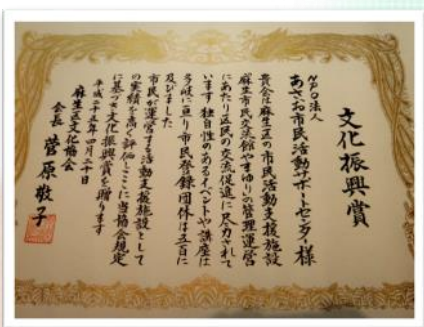 文化振興賞
NPO法人
あさお市民活動サポートセンター様
貴会は麻生区の市民活動支援施設
麻生市民交流館やまゆりの管理運営
にあたり区民の交流促進に尽力されて
います 独自性のあるイベントや講座は
多岐に亘り市民登録団体は五百に
及びました
市民が運営する活動支援施設として
の実績を高く評価しここに当協会規定
に基づき文化振興賞を贈ります
平成二十五年四月二十日
麻生区文化協会
会長 菅原敬子